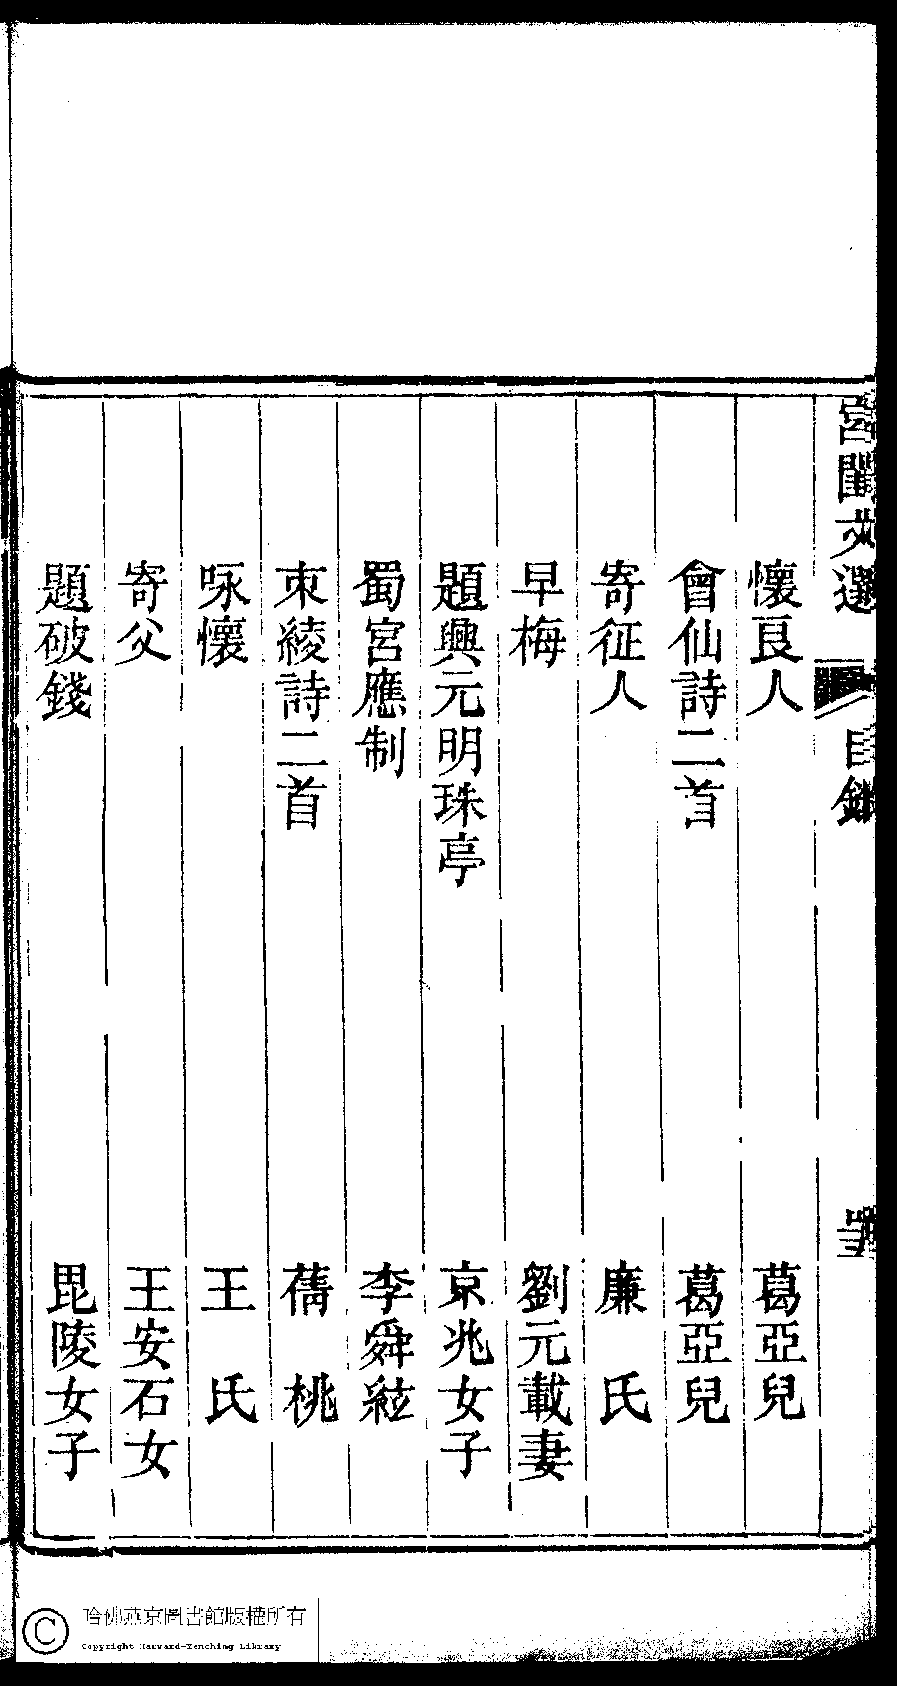 宮閨文選　目錄
懷良人　葛亞兒
會仙詩二首　葛亞兒
寄征人　廉氏
早梅　劉元載妻
題興元明珠亭　京兆女子
蜀宮應制　李舜絃
朿綾詩二首　蒨桃
咏懷　王氏
寄父　王安石女
題破錢　毘陵女子
哈佛燕京圖書館版權所有
Copyright Harvard-Yenching Library